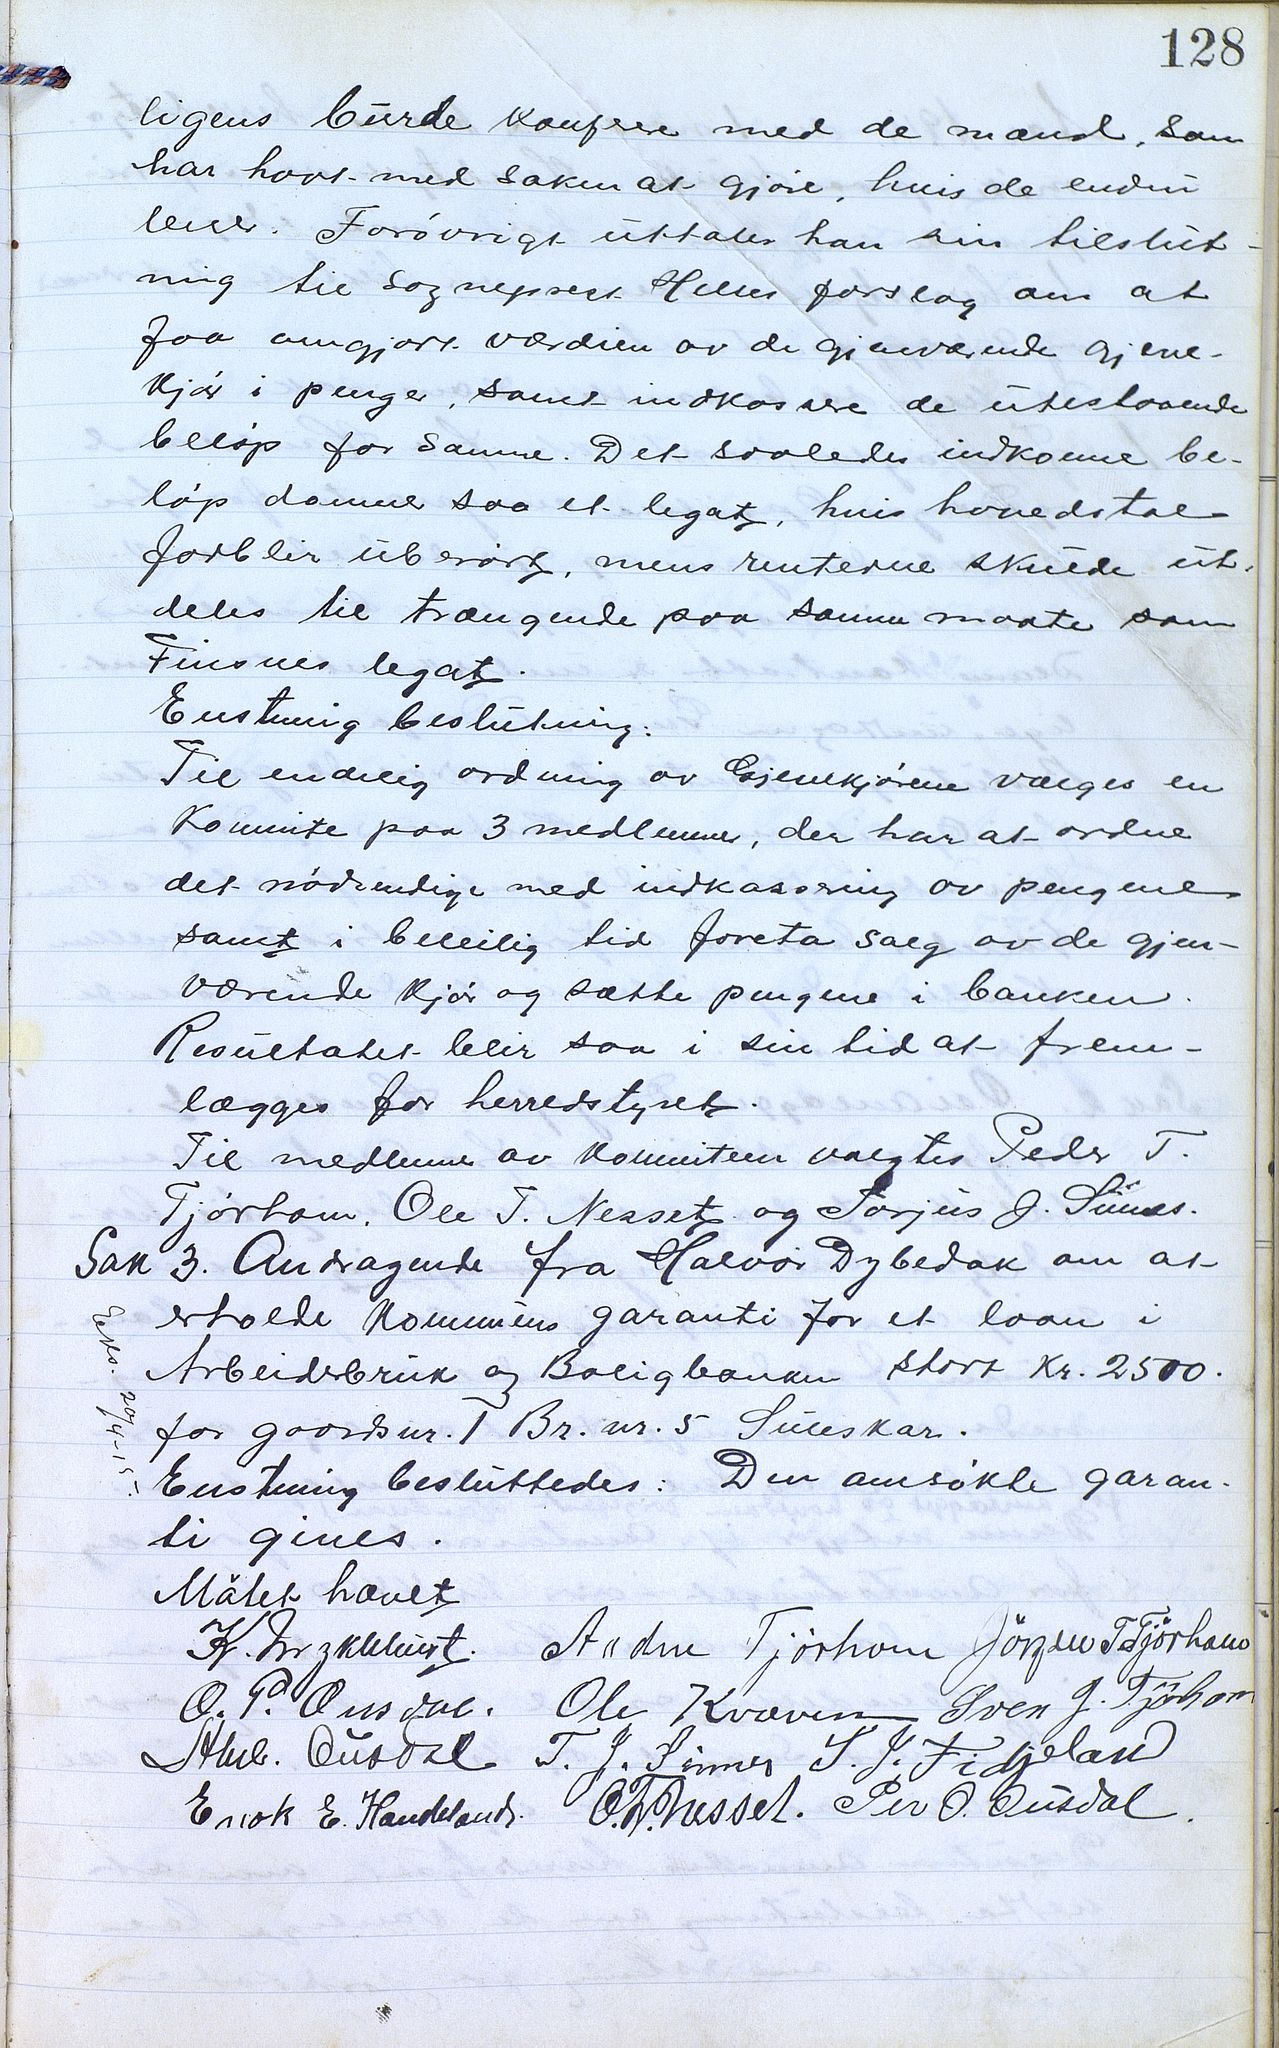 128
ligens burde konferere med de mænd, som
har havt med saken at gjøre, hvis de endnu
lever. Forøvrigt uttaler han sin tilslut-
ning til sogneprest Helles forslag om at
faa omgjort værdien av de gjenværende gjeve-
kjør i penger, samt indkassere de utestaaende
beløp for samme. Det saaledes indkomne be-
løp danner saa et legat, hvis hovedstol
forblir uberørt, mens renterne skulde ut-
deles til trængende paa samme maate som
Finsnes legat.
Enstemig beslutning:
Til endelig ordning av Gjevekjørene vælges en
Komite paa 3 medlemmer, der har at ordne
det nødvendige med indkassering av pengene
samt i beleilig tid foreta salg av de gjen-
værende kjør og sætte pengene i banken.
Resultatet blir saa i sin tid at frem-
lægges for herredstyret.
Til medlemmer av komiteen valgtes Peder T.
Tjørhom, Ole T. Nesset og Torjus J. Sinnes.
Sak 3. Andragende fra Halvor Dybedak om at
erholde kommunens garanti for et laan i
Arbeiderbruk og Boligbanken stort Kr. 2500.
for gaardsnr. 1 Br. nr. 5 Suleskar.
Eks. 20/4-15.
Enstemig besluttedes: Den ansøkte garan-
ti gives.
Mötet hævet
K. Tryklehurst. Andre Tjörhom Jörgen T Tjörhom
O. P. Ousdal. Ole Kvæven Sven J. Tjörhom
Ousdal T. J. Sinnes S. J. Fidjeland
Enok E. Handeland. O. T. Nesset. Per O. Ousdal.